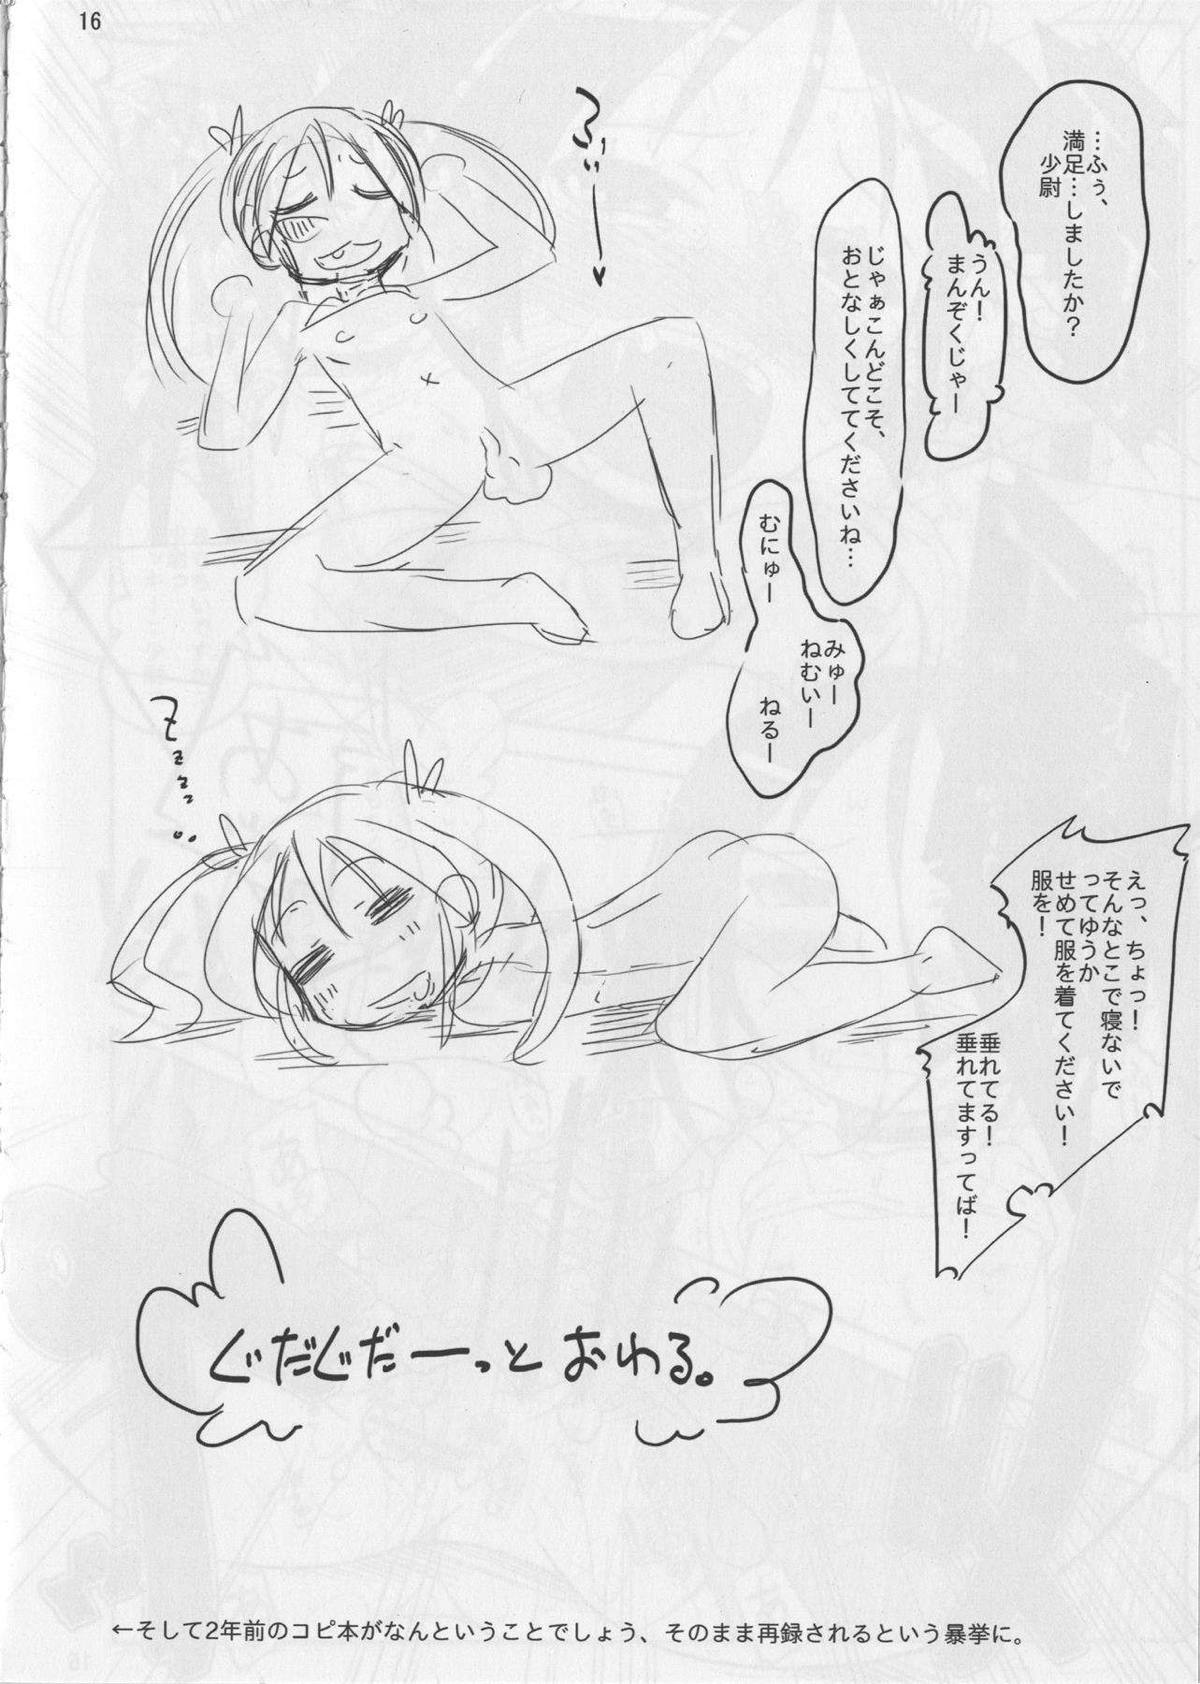 16
…ふぅ、
満足…しましたか？
少尉
うん！
まんぞくじゃー
じゃぁこんどこそ、
おとなしくしててくださいね…
むにゅー
みゅー
ねむいー
ねるー
ふぅぃー
Zzzz…
えっ、ちょっ！
そんなとこで寝ないで
ってゆうか
せめて服を着てください！
服を！
垂れてる！
垂れてますってば！
ぐだぐだーっとおわる。
←そして2年前のコピ本がなんということでしょう、そのまま再録されるという暴挙に。